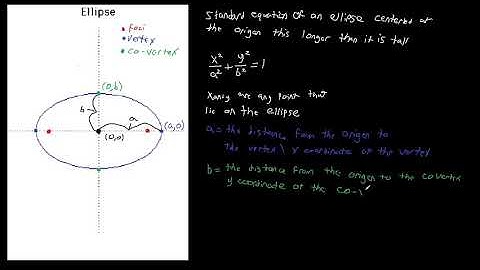 Ellipse
foci
vertex
co-vertex
(0,b)
b
a
(a,0)
(0,0)
Standard equation of an ellipse centered at
the origin this longer than it is tall
x²/a² + y²/b² = 1
X and y are any point that
lie on the ellipse
a = the distance from the origin to
the vertex \ X coordinate of the vertex
b = the distance from the origin to the co vertex
y coordinate of the co-